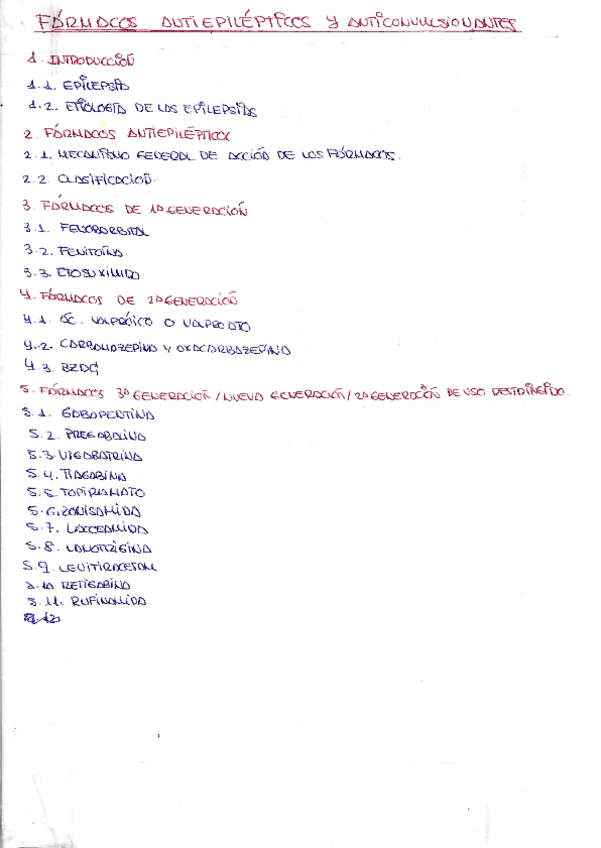 FÁRMACOS ANTIEPILÉPTICOS Y ANTICONVULSIONANTES
1. INTRODUCCIÓN
1.1. EPILEPSIA
1.2. ETIOLOGÍA DE LAS EPILEPSIAS
2. FÁRMACOS ANTIEPILÉPTICOS
2.1. MECANISMO GENERAL DE ACCIÓN DE LOS FÁRMACOS.
2.2. CLASIFICACIÓN.
3. FÁRMACOS DE 1ª GENERACIÓN
3.1. FENOBARBITAL
3.2. FENITOÍNA
3.3. ETOSUXIMIDA
4. FÁRMACOS DE 2ª GENERACIÓN
4.1. ÁC. VALPRÓICO O VALPROATO
4.2. CARBAMAZEPINA Y OXACARBAZEPINA
4.3. BZDG
5. FÁRMACOS 3ª GENERACIÓN / NUEVA GENERACIÓN / 2ª GENERACIÓN DE USO RESTRINGIDO.
5.1. GABAPENTINA
5.2. PREGABALINA
5.3. VIGABATRINA
5.4. TIAGABINA
5.5. TOPIRAMATO
5.6. ZONISAMIDA
5.7. LACOSAMIDA
5.8. LAMOTRIGINA
5.9. LEVITIRACETAM
5.10 RETIGABINA
5.11. RUFINAMIDA